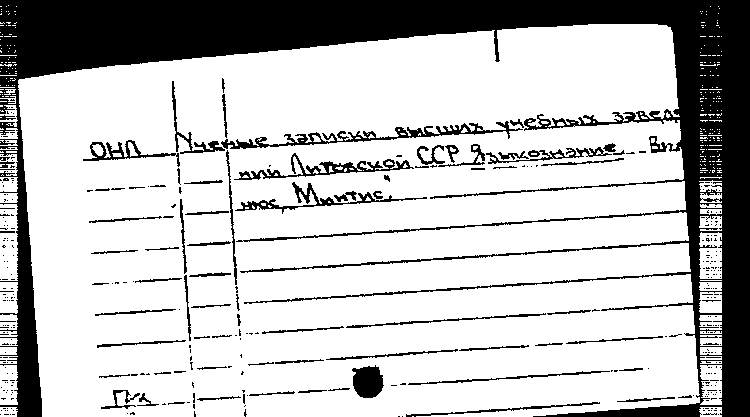 ОНЛ Ученые записки высших учебных заведе
ний Литовской ССР Языкознание Вил
нюс, "Минтис"